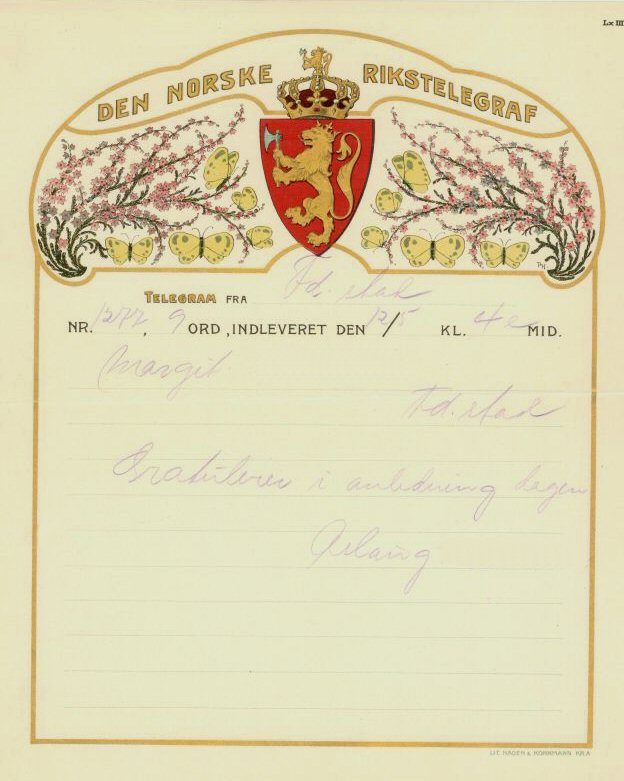 Lx III
DEN NORSKE RIKSTELEGRAF
TELEGRAM FRA Fd. stad
NR. 1277, 9 ORD, INDLEVERET DEN 12/5 KL. 4 e MID.
Margit
Fd. stad
Gratulerer i anledning dagen
Aslaug
LIT. HAGEN & KORNMANN KR.A